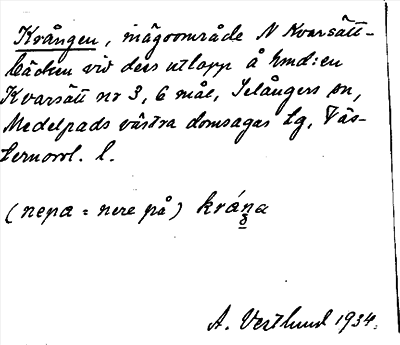 Krången, inägoområde N Kvarsätt-
bäcken vid dess utlopp å hmd:en
Kvarsätt nr 3, 6 mål, Selångers sn,
Medelpads västra domsagas tg, Väs-
ternorrl. l.
(nepa = nere på) kråŋa
A. Vestlund 1934.